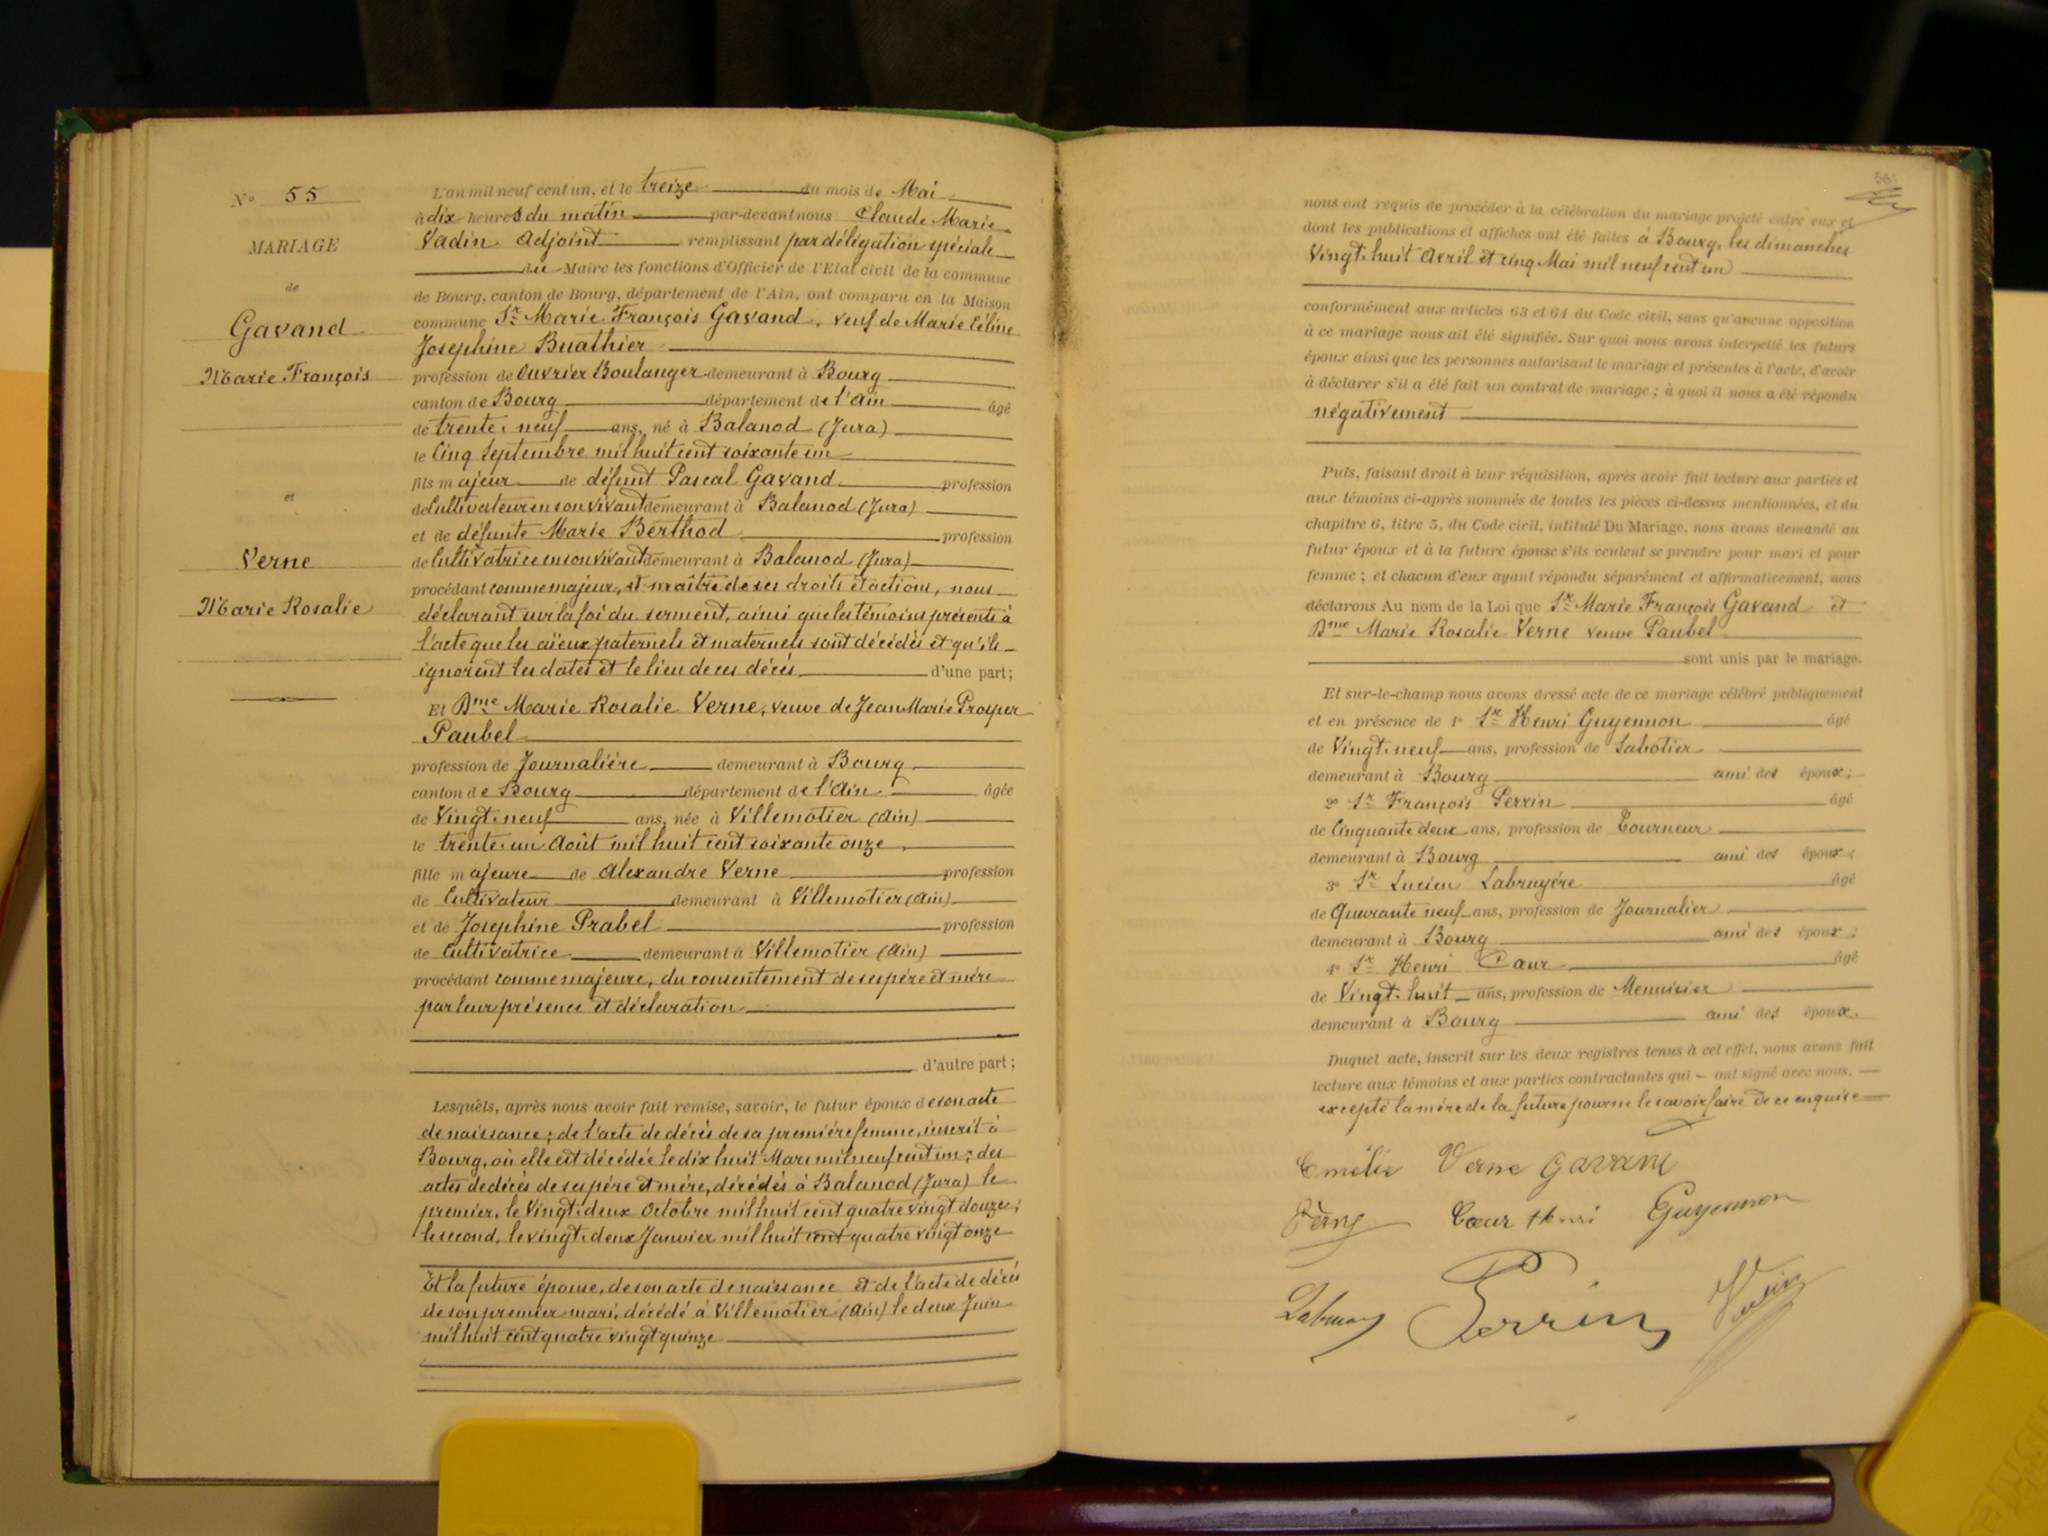 N° 55
MARIAGE
de
Gavand
Marie François
et
Verne
Marie Rosalie
L'an mil neuf cent un, et le treize du mois de Mai
à dix heures du matin par-devant nous Claude Marie
Vadin Adjoint remplissant par délégation spéciale
du Maire les fonctions d'Officier de l'Etat civil de la commune
de Bourg, canton de Bourg, département de l'Ain, ont comparu en la Maison
commune Sr Marie François Gavand, veuf de Marie Céline
Josephine Buathier
profession de Ouvrier Boulanger demeurant à Bourg
canton de Bourg département de l'Ain âgé
de trente-neuf ans, né à Balanod (Jura)
le Cinq Septembre mil huit cent soixante un
fils majeur de défunt Pascal Gavand profession
de Cultivateur en son vivant demeurant à Balanod (Jura)
et de défunte Marie Berthod profession
de Cultivatrice en son vivant demeurant à Balanod (Jura)
procédant comme majeur, et maître de ses droits et actions, nous
déclarant sur la foi du serment, ainsi que les témoins présents à
l'acte que les aïeux paternels et maternels sont décédés et qu'ils
ignorent les dates et le lieu de ces décès d'une part;
Et Dme Marie Rosalie Verne, veuve de Jean Marie Prosper
Paubel
profession de Journalière demeurant à Bourg
canton de Bourg département de l'Ain âgée
de Vingt-neuf ans, née à Villemotier (Ain)
le trente-un Août mil huit cent soixante onze,
fille majeure de Alexandre Verne profession
de Cultivateur demeurant à Villemotier (Ain)
et de Josephine Prabel profession
de Cultivatrice demeurant à Villemotier (Ain)
procédant comme majeure, du consentement de ses père et mère
par leur présence et déclaration
d'autre part;
Lesquels, après nous avoir fait remise, savoir, le futur époux de son acte
de naissance; de l'acte de décès de sa première femme, inscrit à
Bourg, où elle est décédée le dix huit Mars mil neuf cent un; des
actes de décès de ses père et mère, décédés à Balanod (Jura) le
premier, le Vingt-deux Octobre mil huit cent quatre vingt douze;
le second, le vingt-deux Janvier mil huit cent quatre vingt onze
Et la future épouse, de son acte de naissance et de l'acte de décès
de son premier mari, décédé à Villemotier (Ain) le deux Juin
mil huit cent quatre vingt quinze
nous ont requis de procéder à la célébration du mariage projeté entre eux et
dont les publications et affiches ont été faites à Bourg, les dimanches
Vingt-huit Avril et cinq Mai mil neuf cent un
conformément aux articles 63 et 64 du Code civil, sans qu'aucune opposition
à ce mariage nous ait été signifiée. Sur quoi nous avons interpellé les futurs
époux ainsi que les personnes autorisant le mariage et présentes à l'acte, d'avoir
à déclarer s'il a été fait un contrat de mariage; à quoi il nous a été répondu
négativement
Puis, faisant droit à leur réquisition, après avoir fait lecture aux parties et
aux témoins ci-après nommés de toutes les pièces ci-dessus mentionnées, et du
chapitre 6, titre 5, du Code civil, intitulé Du Mariage, nous avons demandé au
futur époux et à la future épouse s'ils veulent se prendre pour mari et pour
femme; et chacun d'eux ayant répondu séparément et affirmativement, nous
déclarons Au nom de la Loi que Sr Marie François Gavand et
Dme Marie Rosalie Verne veuve Paubel
sont unis par le mariage.
Et sur-le-champ nous avons dressé acte de ce mariage célébré publiquement
et en présence de 1° Sr Henri Guyennon âgé
de Vingt-neuf ans, profession de Sabotier
demeurant à Bourg ami des époux;
2° Sr François Perrin âgé
de Cinquante deux ans, profession de Tourneur
demeurant à Bourg ami des époux;
3° Sr Lucien Labruyère âgé
de Quarante neuf ans, profession de Journalier
demeurant à Bourg ami des époux;
4° Sr Henri Cœur âgé
de Vingt-huit ans, profession de Menuisier
demeurant à Bourg ami des époux.
Duquel acte, inscrit sur les deux registres tenus à cet effet, nous avons fait
lecture aux témoins et aux parties contractantes qui ont signé avec nous.
excepté la mère de la future pour ne le savoir faire de ce enquise
Emélie Verne Gavand
Cœur Henri Guyennon
Perrin Vadin